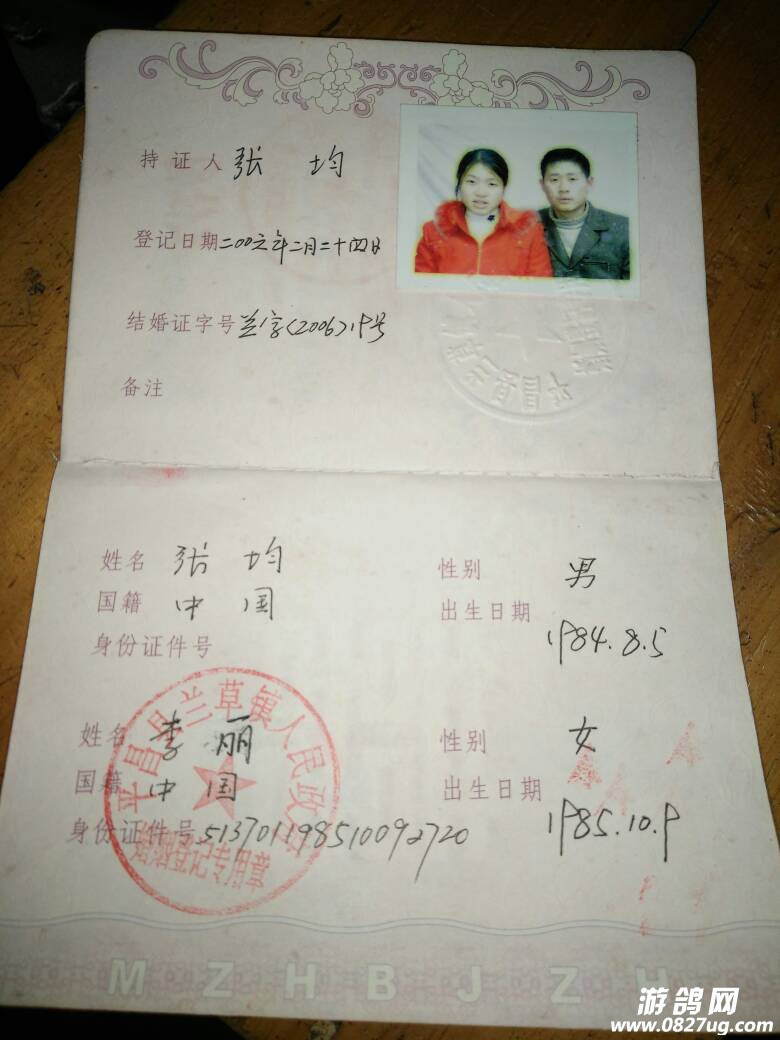 持证人 张 均
登记日期 二00六年二月二十四日
结婚证字号 兰字(2006)19号
备注
姓名 张 均 性别 男
国籍 中国 出生日期 1984.8.5
身份证件号
姓名 李 丽 性别 女
国籍 中国 出生日期 1985.10.9
身份证件号 513701198510092720
平昌县兰草镇人民政府
婚姻登记专用章
MZHBJZH
游鸽网
www.0827ug.com